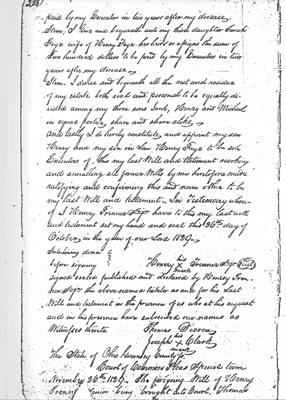 paid by my Executor in two years after my decease
Item, I Give and bequeath unto my third daughter Sarah
Frye wife of Henry Frye her heirs or assigns the sum of
two hundred dollars to be paid by my Executors in two
years after my decease
Item. I devise and bequeath all the rest and residue
of my estate both real and personal to be equally di-
vided among my three sons Jacob, Henry and Michael
in equal portion, share and share alike,
and lastly I do hereby constitute, and appoint my son
Henry and my son in law Henry Frye to be sole
Executors of this my last Will and testament revoking
and annulling all former Wills by me heretofore made
ratifying and confirming this and none other to be
my last Will and testament - In Testimony where-
of I Henry have to this my last will
and testament set my hand and seal this 26th day of
October in the year of our Lord 1829.
before signing Henry his mark Seal
signed sealed published and declared by Henry
the above named testator as and for his last
Will and testament in the presence of us who at his request
and in his presence have subscribed our names as
Witnesses hereto Thomas
Joseph his mark Clark
The State of Ohio Guernsey County
Court of Common Pleas Special term
November 26th 1829 The foregoing Will of Henry
being brought into Court. Thomas